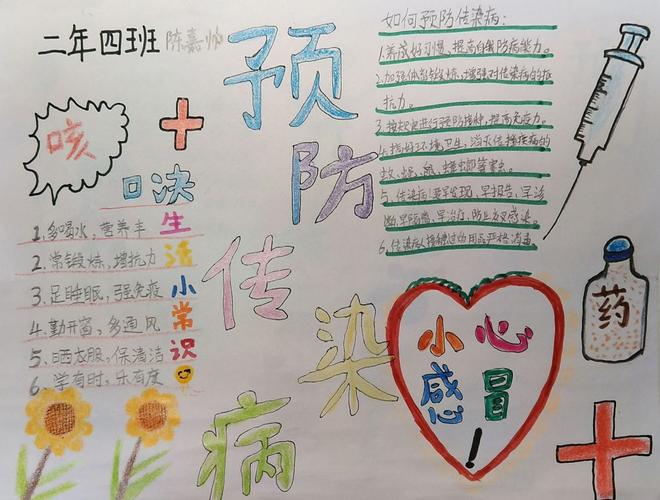 二年四班 陈嘉帅
预防传染病
咳
口决
生活小常识
1.多喝水,营养丰
2.常锻炼,增抗力
3.足睡眠,强免疫
4.勤开窗,多通风
5.晒衣服,保清洁
6.学有时,乐有度
如何预防传染病:
1.养成好习惯,提高自我防病能力。
2.加强体育锻炼,增强对传染病的抵
抗力。
3.按规定进行预防接种,提高免疫力。
4.搞好环境卫生,消灭传播疾病的
蚊、蝇、鼠、蟑螂等害虫。
5.传染病人要早发现,早报告,早诊
断,早隔离,早治疗,防止交叉感染。
6.传染病人接触过的用品严格消毒
小心
感冒
!
药